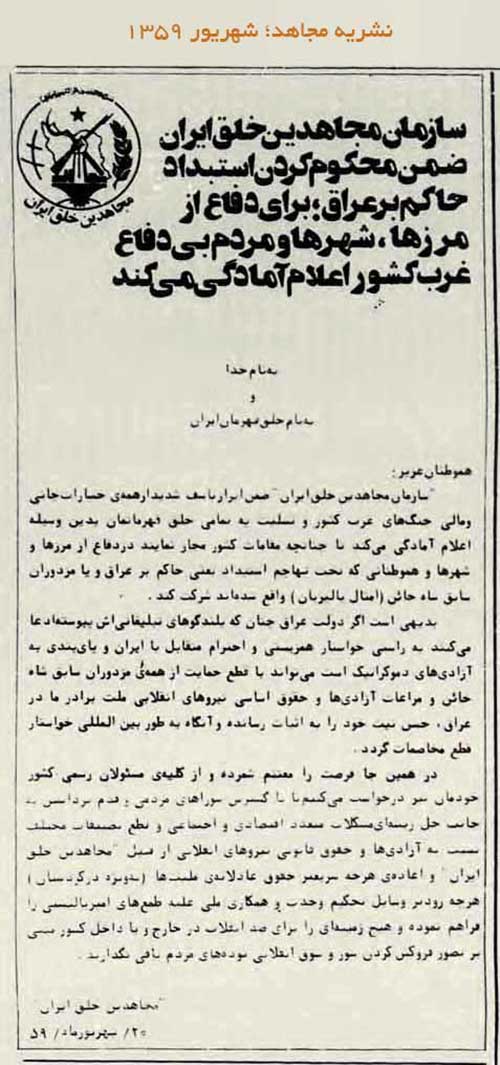 نشریه مجاهد؛ شهریور ۱۳۵۹
مجاهدین خلق ایران
سازمان مجاهدین خلق ایران
ضمن محکوم کردن استبداد
حاکم بر عراق؛ برای دفاع از
مرزها، شهرها و مردم بی دفاع
غرب کشور اعلام آمادگی می کند
به نام خدا
و
به نام خلق قهرمان ایران
هموطنان عزیز:
"سازمان مجاهدین خلق ایران" ضمن ابراز تاسف شدید از همه‌ی خسارات جانی
ومالی جنگ‌های غرب کشور و تسلیت به تمامی خلق قهرمانمان بدین وسیله
اعلام آمادگی می‌کند تا چنانچه مقامات کشور مجاز نمایند دردفاع از مرزها و
شهرها و هموطنانی که تحت تهاجم استبداد بعثی حاکم بر عراق و یا مزدوران
سابق شاه خائن (امثال پالیزبان) واقع شده‌اند شرکت کند.
بدیهی است اگر دولت عراق چنان که بلندگوهای تبلیغاتی‌اش پیوسته‌ادعا
می‌کنند به راستی خواستار همزیستی و احترام متقابل با ایران و پای‌بندی به
آزادی‌های دموکراتیک است می‌تواند با قطع حمایت از همه‌ی مزدوران سابق شاه
خائن و مراعات آزادی‌ها و حقوق اساسی نیروهای انقلابی ملت برادر ما در
عراق، حسن نیت خود را به اثبات رسانده و آنگاه به طور بین المللی خواستار
قطع مخاصمات گردد.
در همین جا فرصت را مغتنم شمرده و از کلیه‌ی مسئولان رسمی کشور
خودمان نیز درخواست می‌کنیم تا با گسترش شوراهای مردمی و قدم برداشتن به
جانب حل ریشه‌ای مشکلات متعدد اقتصادی و اجتماعی و قطع تضییقات مختلف
نسبت به آزادی‌ها و حقوق قانونی نیروهای انقلابی از قبیل "مجاهدین خلق
ایران" و اعاده‌ی هرچه سریعتر حقوق عادلانه‌ی ملیت‌ها (به‌ویژه درکردستان)
هرچه زودتر وسایل تحکیم وحدت و همکاری ملی علیه طمع‌های امپریالیستی را
فراهم نموده و هیچ زمینه‌ای را برای ضد انقلاب در خارج و یا داخل کشور مبنی
بر تصور فروکش کردن شور و شوق انقلابی توده‌های مردم باقی نگذارند.
"مجاهدین خلق ایران"
۲۰/ شهریورماه/ ۵۹